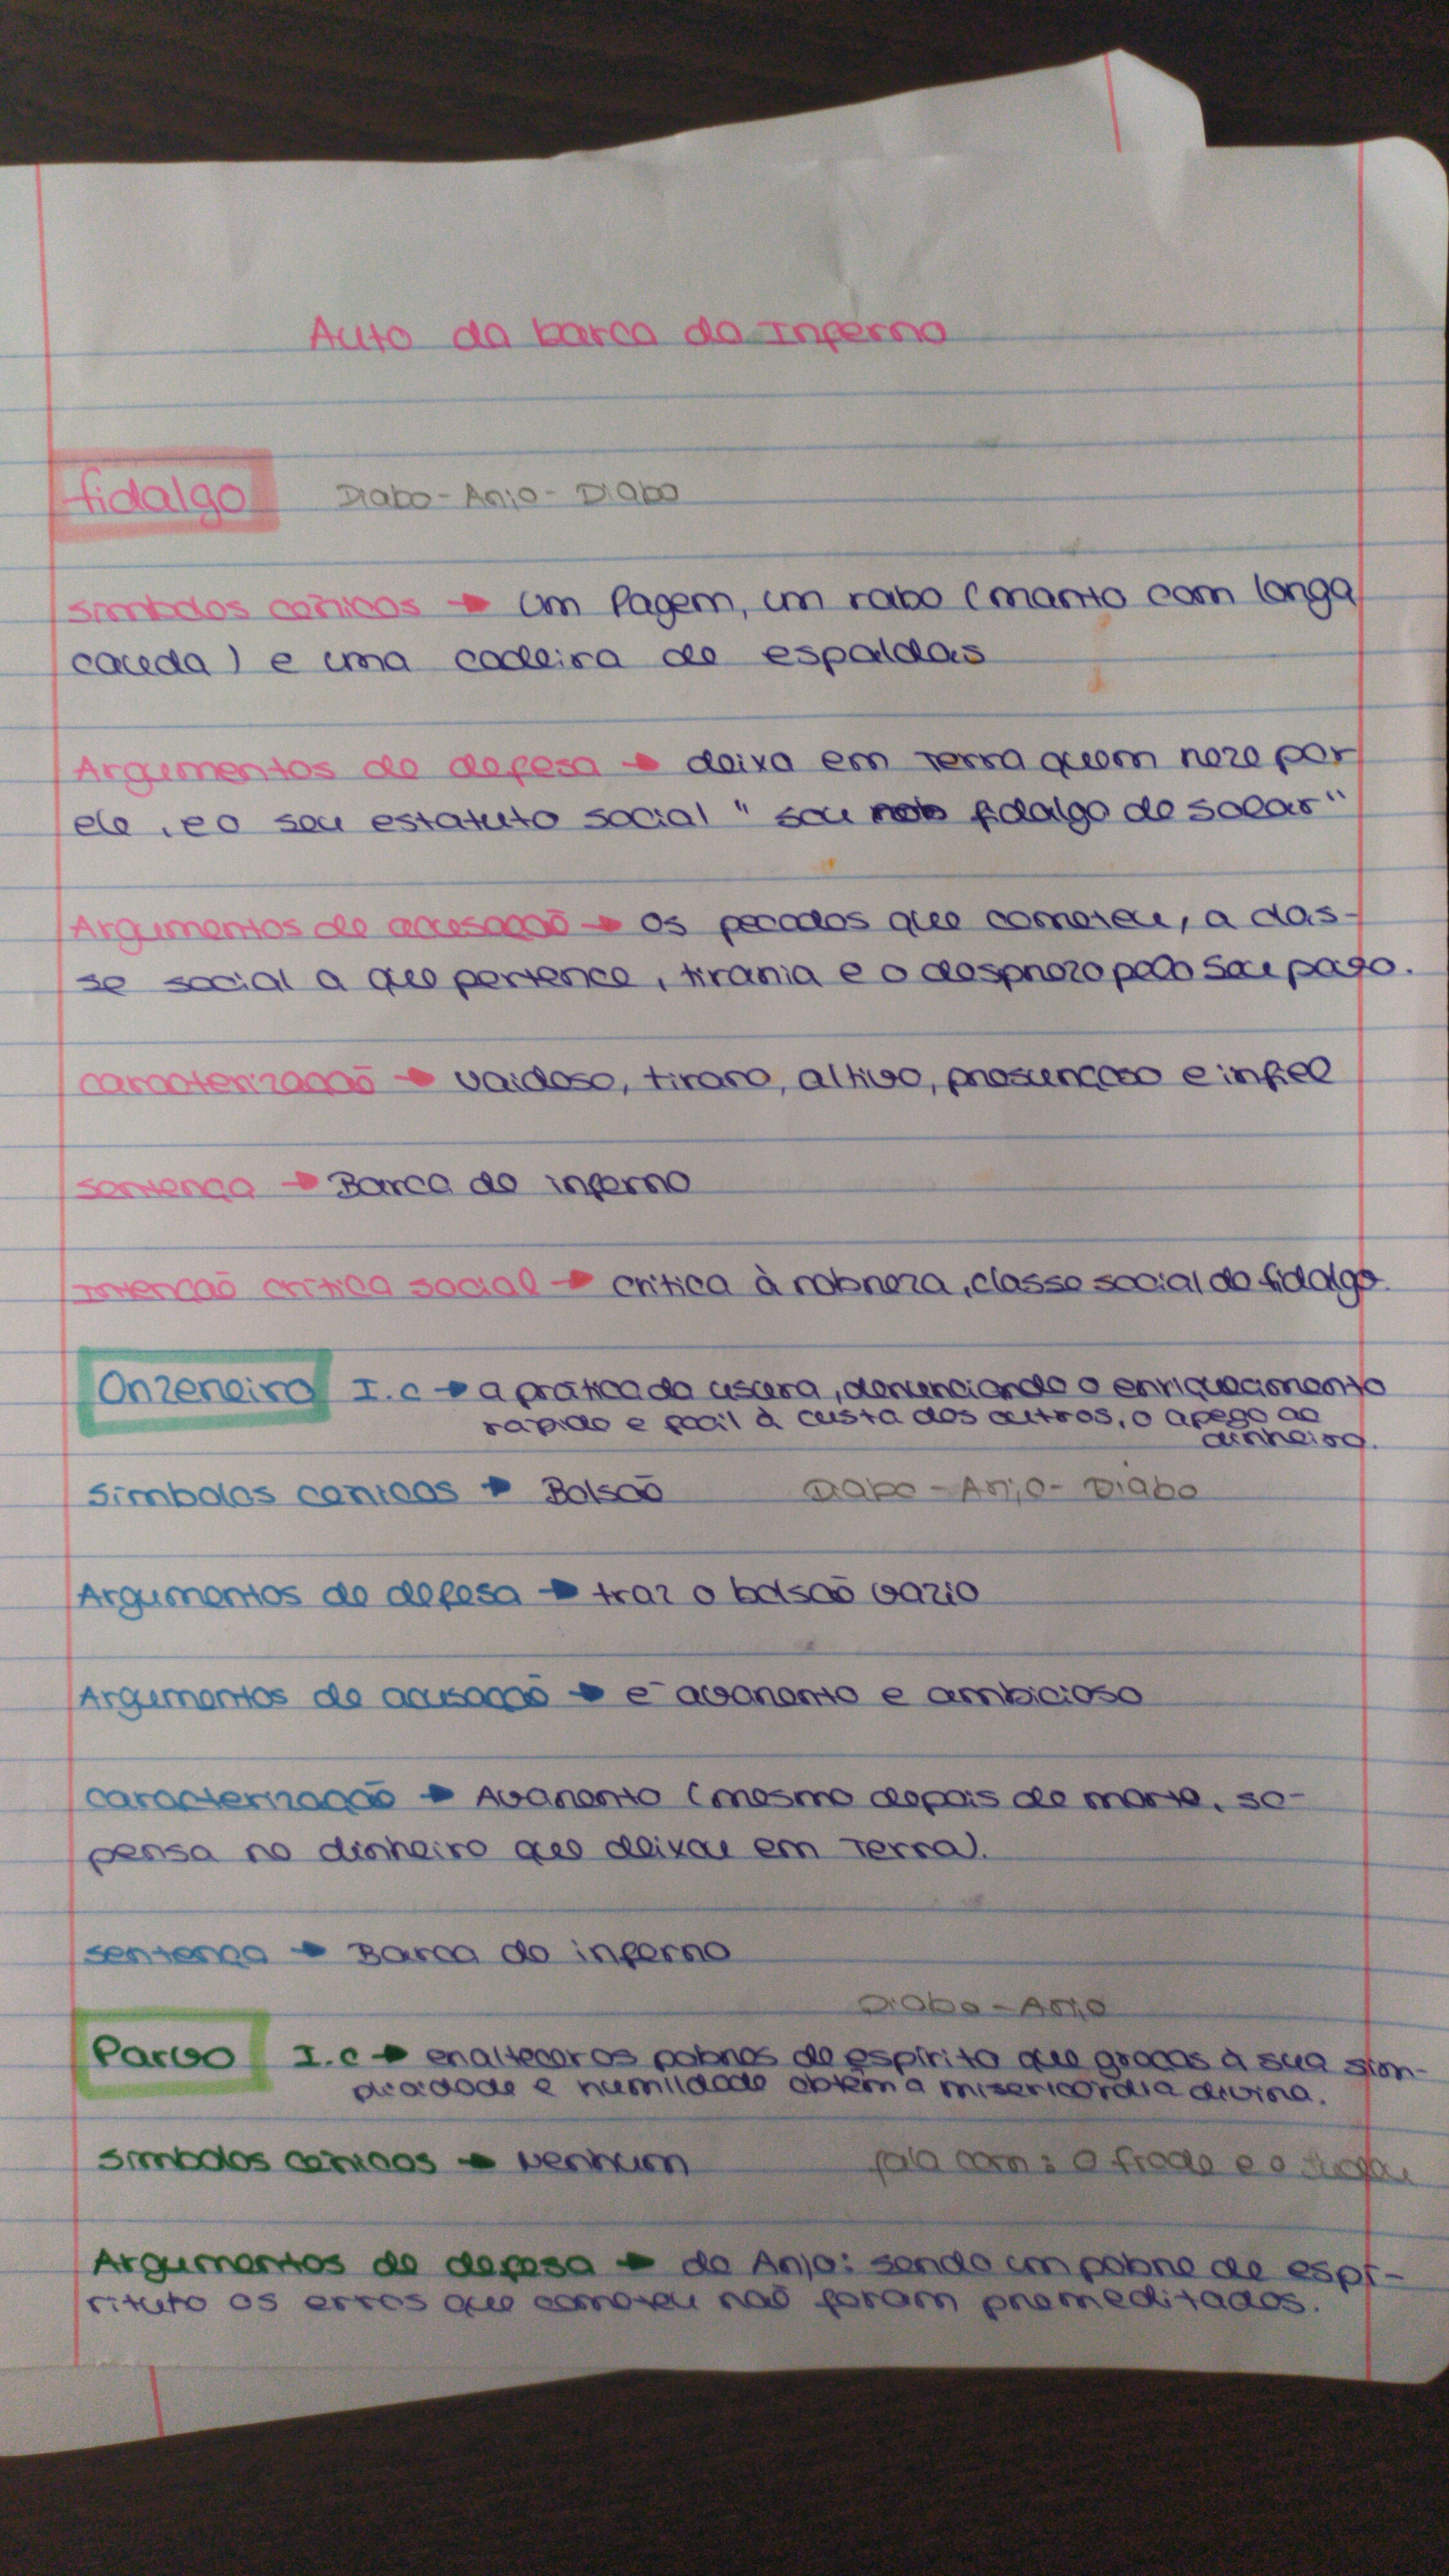 Auto da barca do Inferno
fidalgo Diabo - Anjo - Diabo
simbolos cenicos → Um Pagem, um rabo (manto com longa
cauda) e uma cadeira de espaldas
Argumentos de defesa → deixa em terra quem reze por
ele, e o seu estatuto social " sou fidalgo de solar"
Argumentos de acusação → Os pecados que cometeu, a clas-
se social a que pertence, tirania e o desprezo pelo seu povo.
caracterização → vaidoso, tirano, altivo, presunçoso e infiel
sentença → Barca do inferno
Intenção crítica social → crítica à nobreza, classe social do fidalgo.
Onzeneiro I.c → a prática da usura, denunciando o enriquecimento
rápido e facil à custa dos outros, o apego ao
dinheiro.
Simbolos cenicos → Bolsão Diabo - Anjo - Diabo
Argumentos de defesa → traz o bolsão vazio
Argumentos de acusação → é avarento e ambicioso
caracterização → Avarento (mesmo depois de morte, so-
pensa no dinheiro que deixou em terra).
sentença → Barca do inferno
Diabo - Anjo
Parvo I.c → enaltecer os pobres de espírito que graças à sua sim-
plicidade e humildade obtêm a misericórdia divina.
Simbolos cénicos → Nenhum fala com: o frade e o Judeu
Argumentos de defesa → do Anjo: sendo um pobre de espí-
rituto os erros que cometeu não foram premeditados.